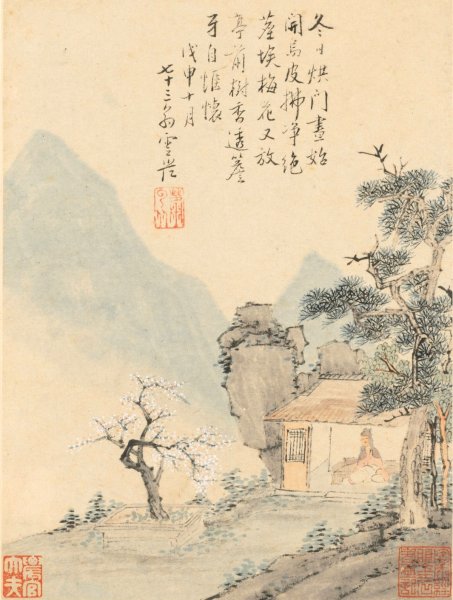 冬日烘門晝始
開烏皮拂净絶
塵埃梅花又放
亭前樹香透簷
牙自惬懷
戊申十月
七十三翁